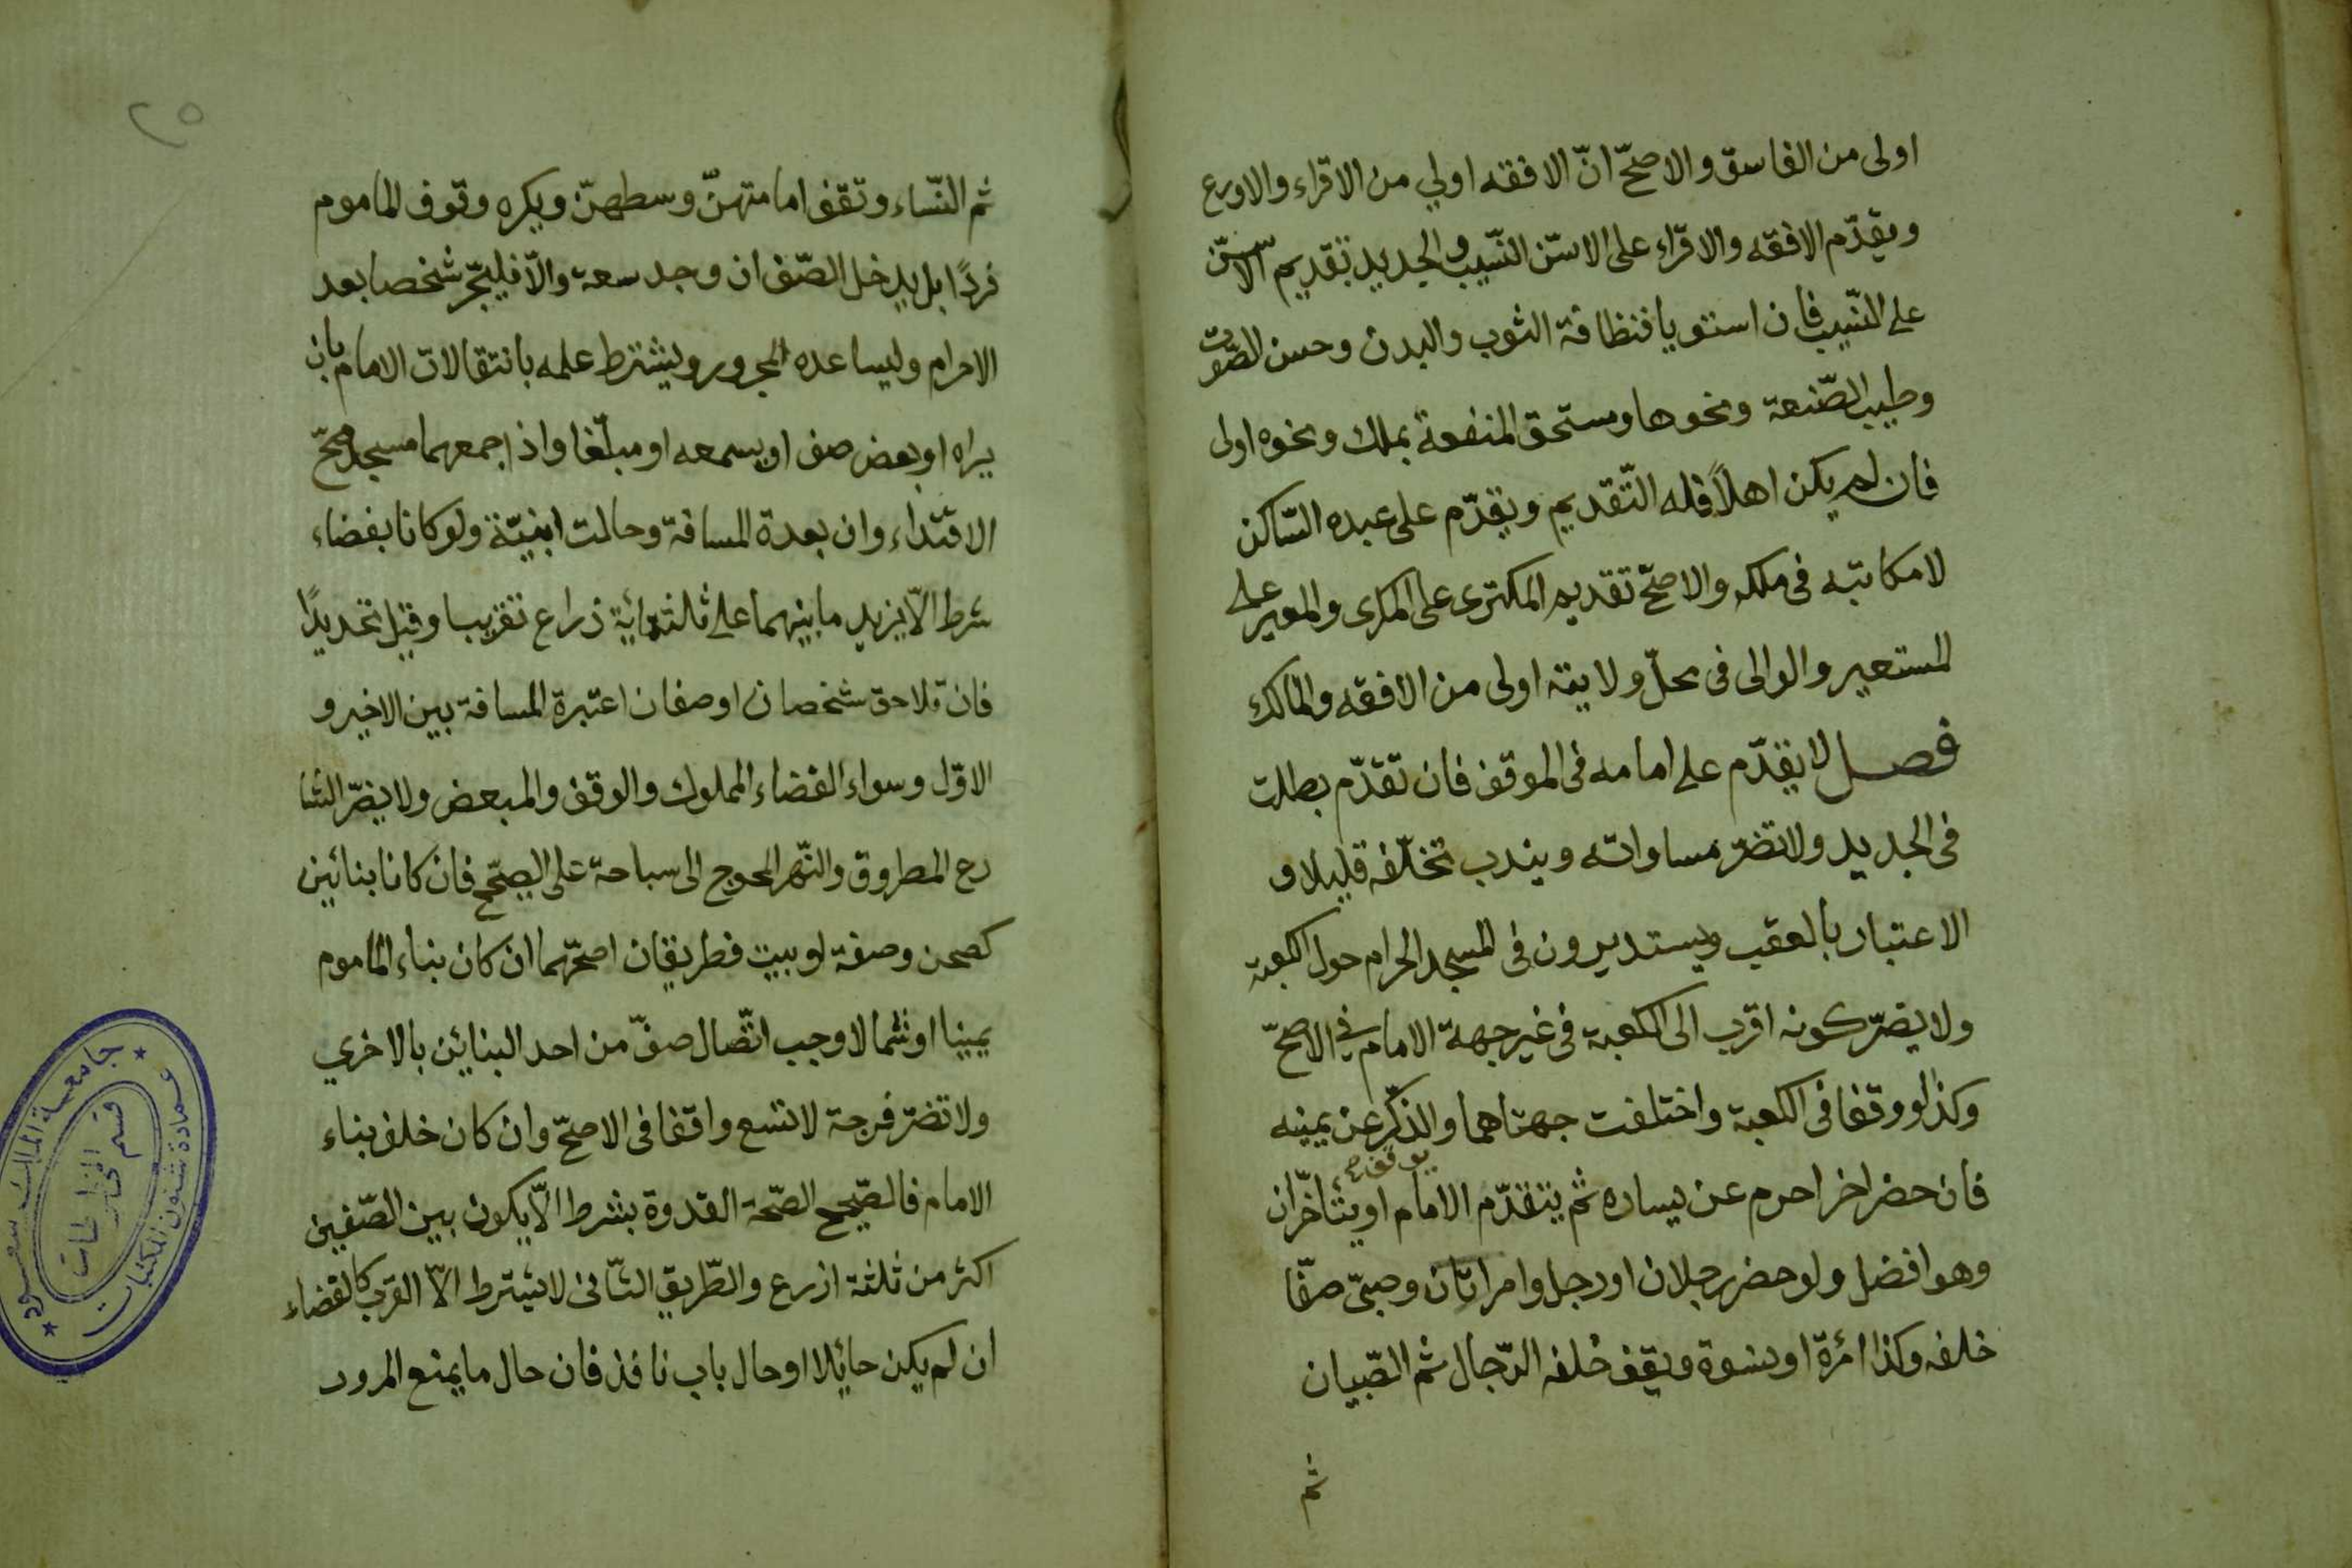 اولى من الفاسق والاصحّ انّ الافقه اولي من الاقراء والاورع
ويقدّم الافقه والاقرّاء على الاسنّ النّسيب والجديد تقديم الاسنّ
على النّسيب فان استويا فنظافة الثوب والبدن وحسن الصّوت
وطيب الصّنعة ونحوها ومستحق المنفعة بملك ونحوه اولى
فان لم يكن اهلاً فله التّقديم ويقدّم على عبده السّاكن
لا مكاتبه فى ملكه والاصحّ تقديم المكترى على المكرى والمعير على
المستعير والوالى فى محلّ ولايته اولى من الافقه والمالك
فصل لا يقدّم على امامه فى الموقف فان تقدّم بطلت
فى الجديد ولا تضرّ مساواته ويندب تخلّفه قليلا و
الاعتبار بالعقب ويستديرون فى المسجد الحرام حول الكعبة
ولا يضرّ كونه اقرب الى الكعبة فى غير جهة الامام في الاصحّ
وكذا لو وقفا فى الكعبة واختلفت جهتاهما والذّكر عن يمينه
يقف
فان حضر اخر احرم عن يساره ثم يتقدّم الامام او يتأخّران
وهو افضل ولو حضر رجلان او رجل وامراتان وصبيّ صفّا
خلفه وكذا امرّة او نسوة ويقف خلفه الرّجال ثم الصّبيان
ثم
٢٥
ثم النّساء وتقف امامتهنّ وسطهنّ ويكره وقوف الماموم
فردًا بل يدخل الصّف ان وجد سعة والاّ فليجرّ شخصا بعد
الاحرام وليساعده المجرور ويشترط علمه بانتقالات الامام بان
يراه او بعض صف او يسمعه او مبلّغا واذا جمعهما مسجد صحّ
الاقتداء وان بعدة المسافة وحالت ابنيّة ولو كانا بفضاء
شرط الاّ يزيد ما بينهما على ثلثمائة ذراع تقريبا وقيل تحديدًا
فان تلاحق شخصان او صفان اعتبرة المسافة بين الاخير و
الاوّل وسواء الفضاء المملوك والوقف والمبعض ولا يضرّ الشا
رع المطروق والنّهر المحوج الى سباحة على الصّحيح فان كانا بنائين
كصحن وصفة او بيت فطريقان اصحّهما ان كان بناء الماموم
يمينا او شمالا وجب اتّصال صفّ من احد البنائين بالاخري
ولا تضرّ فرجة لا تسع واقفا فى الاصحّ وان كان خلف بناء
الامام فالصّحيح الصّحة القدوة بشرط الاّ يكون بين الصّفين
اكثر من ثلثة اذرع والطّريق الثّانى لا يشترط الاّ القرب كالفضاء
ان لم يكن حائلا او حال باب نافذ فان حال ما يمنع المرور
جامعة الملك سعود
عمادة شئون المكتبات
قسم المخطوطات